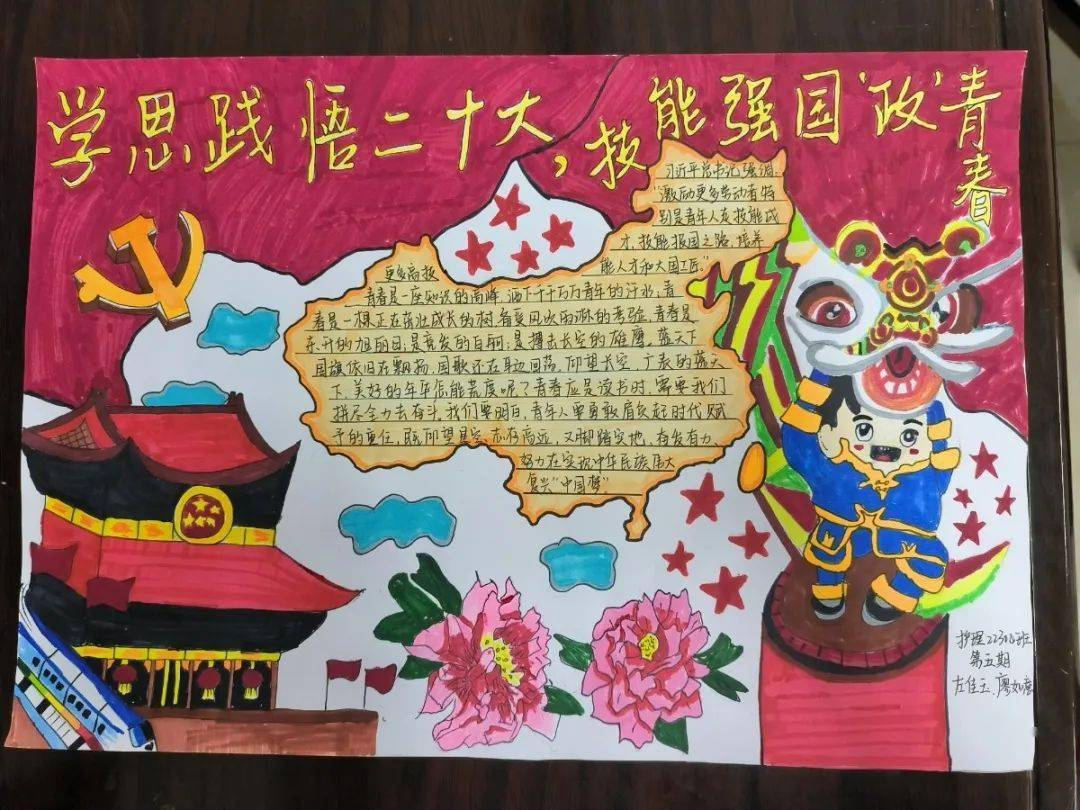 学思践悟二十大，技能强国'政'青春
习近平总书记强调：
"激励更多劳动者特
别是青年人走技能成
才、技能报国之路，培养
更多高技
能人才和大国工匠。"
青春是一座知识的高峰，洒下千千万万青年的汗水，青
春是一棵正在茁壮成长的树，有受风吹雨淋的考验。青春是
东升的旭丽日，是竞发的白舸，是搏击长空的雄鹰。蓝天下
国旗依旧在飘扬，国歌还在耳边回荡，仰望长空，广袤的蓝天
下，美好的年华怎能荒度呢？青春应是读书时，需要我们
拼尽全力去奋斗。我们要明白，青年人要勇敢肩负起时代赋
予的重任，既仰望星空、志存高远，又脚踏实地、奋发有力
努力在实现中华民族伟大
复兴"中国梦"
护理22308班
第五期
左佳玉、廖如意